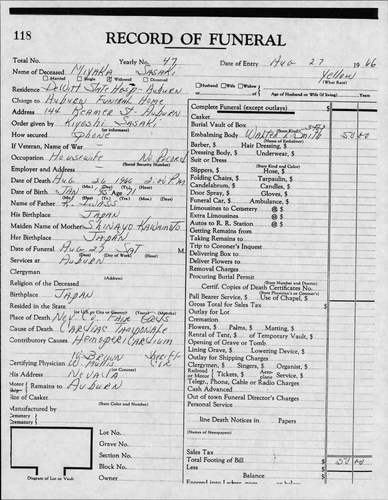 118
RECORD OF FUNERAL
Total No. Yearly No. 47 Date of Entry Aug 27 1966
Name of Deceased Miyaka Sasaki Yellow
(What Race)
Married Single Widowed Divorced
Husband Wife Widow of Age of Husband or Wife (if living) Years
Residence DeWitt State Hosp - Auburn
Charge to Auburn Funeral Home
Address 144 St. Auburn
Order given by Kiyoshi Sasaki
(or informant)
How secured Phone
If Veteran, Name of War
Occupation Housewife No Record
(Social Security Number)
Employer and Address
Date of Death Aug 26 1966 2:00 P.M.
(Mo.) (Day) (Yr.) (Hour)
Date of Birth Jan Age 71
Name of Father K.
His Birthplace Japan
Maiden Name of Mother Kawamoto
Her Birthplace Japan
Date of Funeral Aug 27 Sat M.
(Date) (Day of Week) (Hour)
Services at Auburn
Clergyman
(Address)
Religion of the Deceased
Birthplace Japan
Resided in the State
Place of Death Nev. Co.
Cause of Death Cardiac Tamponade
Contributory Causes Hemopericardium
(or Coroner)
Certifying Physician W.
His Address Nevada
Motor Remains to Auburn
Size of Casket
(State Color and Number)
Manufactured by
Cemetery
Crematory
Lot No.
Grave No.
Section No.
Block No.
Owner
Diagram of Lot or Vault
Complete Funeral (except outlays) $
Casket
Burial Vault or Box
(State Kind)
Embalming Body 50 00
(Name of Embalmer)
Barber, $ Hair Dressing, $
Dressing Body, $ Underwear, $
Suit or Dress
(State Kind and Color)
Slippers, $ Hose, $
Folding Chairs, $ Tarpaulin, $
Candelabrum, $ Candles, $
Door Spray, $ Gloves, $
Funeral Car, $ Ambulance, $
Limousines to Cemetery @ $
Extra Limousines @ $
Autos to R. R. Station @ $
Getting Remains from
Taking Remains to
Trip to Coroner's Inquest
Delivering Box to
Deliver Flowers to
Removal Charges
Procuring Burial Permit
(State Number and District)
Certif. Copies of Death Certificates No.
(State Physician's or Coroner's)
Pall Bearer Service, $ Use of Chapel, $
Gross Total for Sales Tax $
Outlay for Lot
Cremation
Flowers, $ Palms, $ Matting, $
Rental of Tent, $ of Temporary Vault, $
Opening of Grave or Tomb
Lining Grave, $ Lowering Device, $
Outlay for Shipping Charges
Clergymen, $ Singers, $ Organist, $
Railroad or Motor Tickets, $ Aero-plane Service, $
Telegr., Phone, Cable or Radio Charges
Cash Advanced
Out of town Funeral Director's Charges
Personal Service
line Death Notices in Papers
(Names of Newspapers)
Sales Tax
Total Footing of Bill $ 50 00
Less $
Balance $